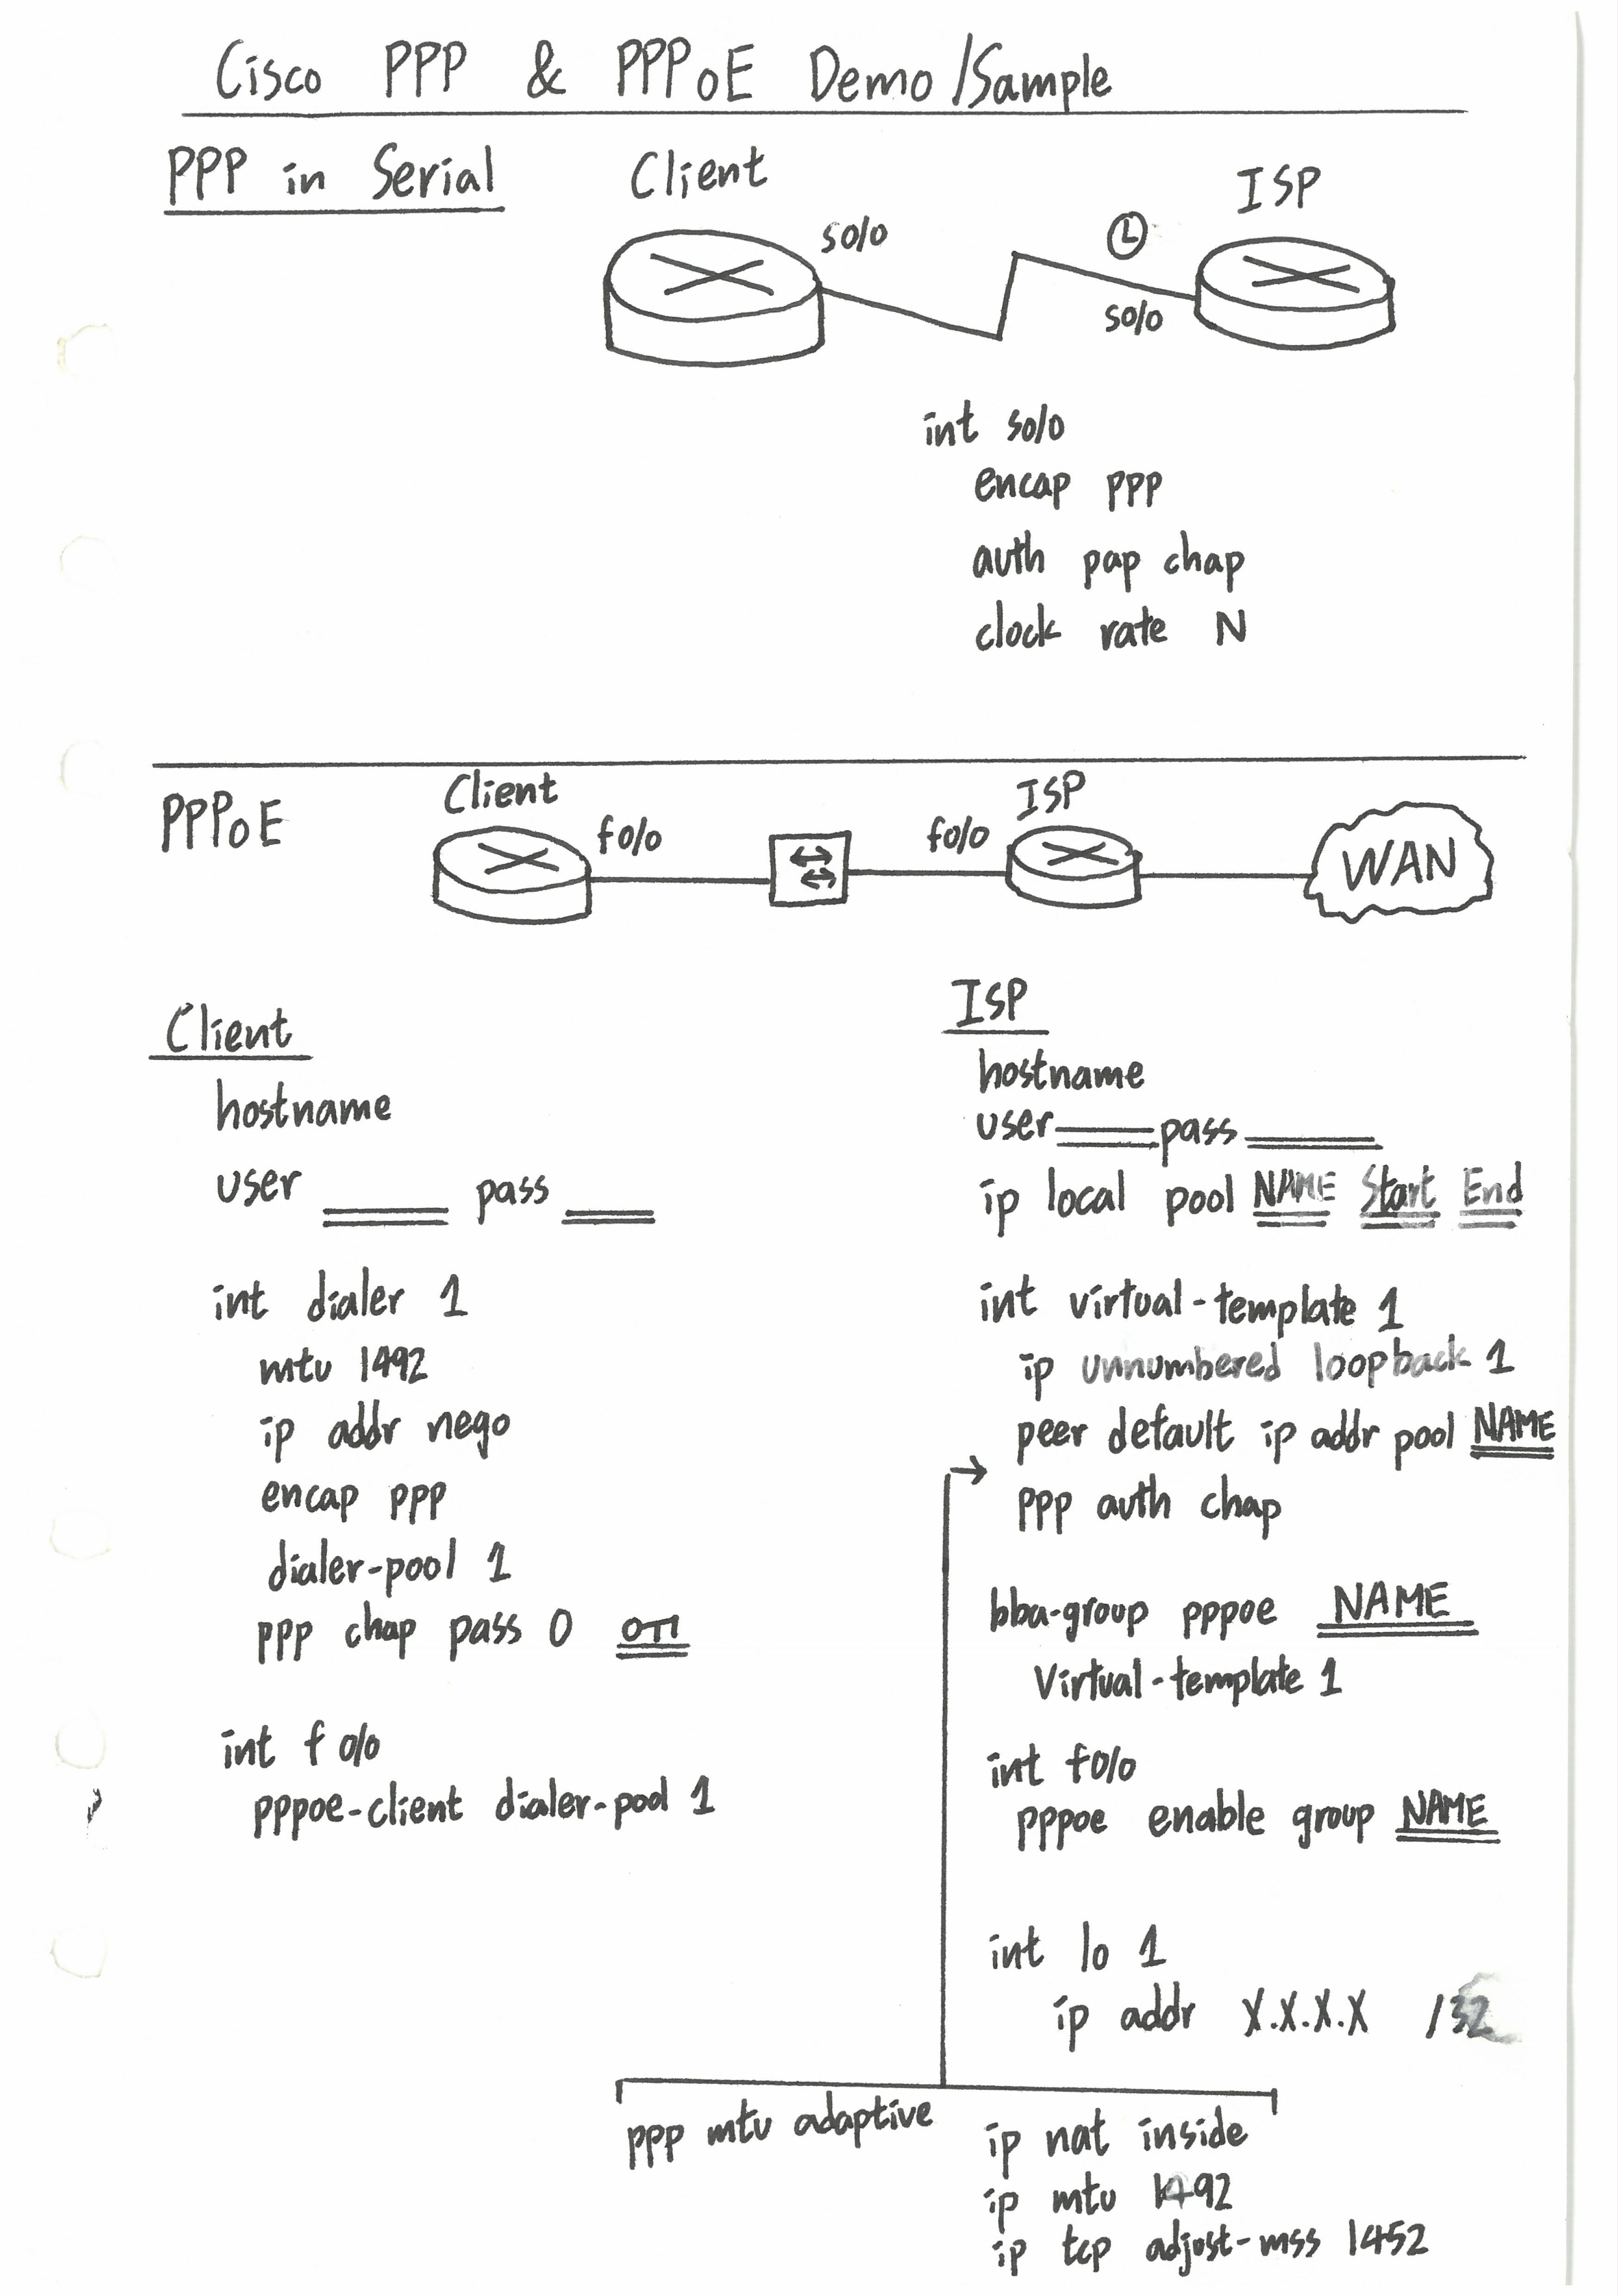 Cisco PPP & PPPoE Demo/Sample
PPP in Serial
Client
ISP
S0/0
S0/0
int s0/0
encap ppp
auth pap chap
clock rate N
PPPoE
Client
ISP
f0/0
f0/0
WAN
Client
hostname
user pass
int dialer 1
mtu 1492
ip addr nego
encap ppp
dialer-pool 1
ppp chap pass 0
int f 0/0
pppoe-client dialer-pool 1
ISP
hostname
user pass
ip local pool NAME Start End
int virtual-template 1
ip unnumbered loopback 1
peer default ip addr pool NAME
ppp auth chap
bba-group pppoe NAME
Virtual-template 1
int f0/0
pppoe enable group NAME
int lo 1
ip addr X.X.X.X /32
ppp mtu adaptive
ip nat inside
ip mtu 1492
ip tcp adjust-mss 1452